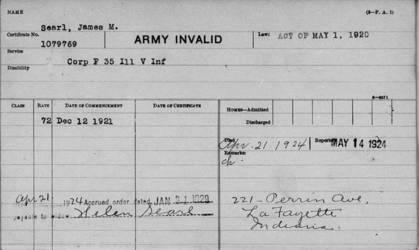 NAME
(3-P. A. 1)
Searl, James M.
Certificate No. 1079769
ARMY INVALID
Law: ACT OF MAY 1, 1920
Service
Corp F 35 Ill V Inf
Disability
CLASS RATE DATE OF COMMENCEMENT DATE OF CERTIFICATE
HOMES—Admitted
Discharged
72 Dec 12 1921
Died Apr. 21 1924 Reported MAY 14 1924
Remarks:
Apr 21, 1924 Accrued order dated
payable to widow Helen Searl
221 - Perrin Ave.
La Fayette
Indiana.